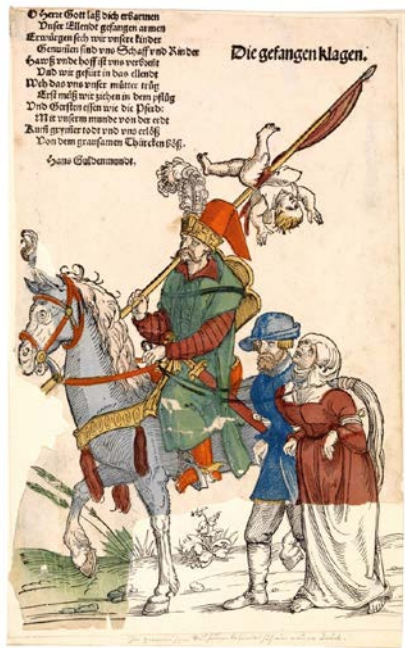 O Herre Gott laß dich erbarmen
Vnser Ellendt gefangen armen
Erwürgen sich wir vnsere kinder
Genumen sind vns Schaff vnd Rinder
Hawß vnde hoff ist vns verbrent
Vnd wir gefürt in das ellendt
Weh das vns vnser mütter trüg
Erst müß wir ziehen in dem pflüg
Vnd Gersten essen wie die Pferde
Mit vnserm munde von der erdt
Kum grymer todt vnd vns erlöß
Von dem grausamen Thürcken böß.
Hans Guldenmundt.
Die gefangen klagen.